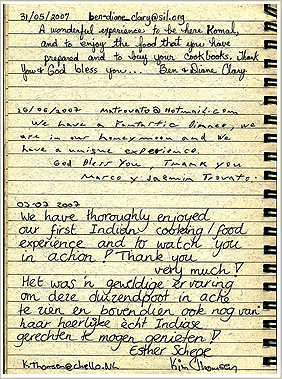 31/05/2007 ben-diane_clary@sil.org
A wonderful experience to be here Komal,
and to enjoy the food that you have
prepared and to buy your cookbooks. Thank
You & God bless you... Ben & Diane Clary
20/06/2007 matrovato@Hotmail.com
We have a Fantastic Dinner, we
are in our honeymoon and we
have a unique experience.
God Bless You Thank you
Marco y Jasmin Trovato.
03-07 2007
We have thoroughly enjoyed
our first Indian cooking/food
experience and to watch you
in action! Thank you
very much!
Het was 'n geweldige ervaring
om deze duizendpoot in actie
te zien en bovendien ook nog van
haar heerlijke echt Indiase
gerechten te mogen genieten!
Esther Schepe
K.Thomson@chello.NL Kim Thomson